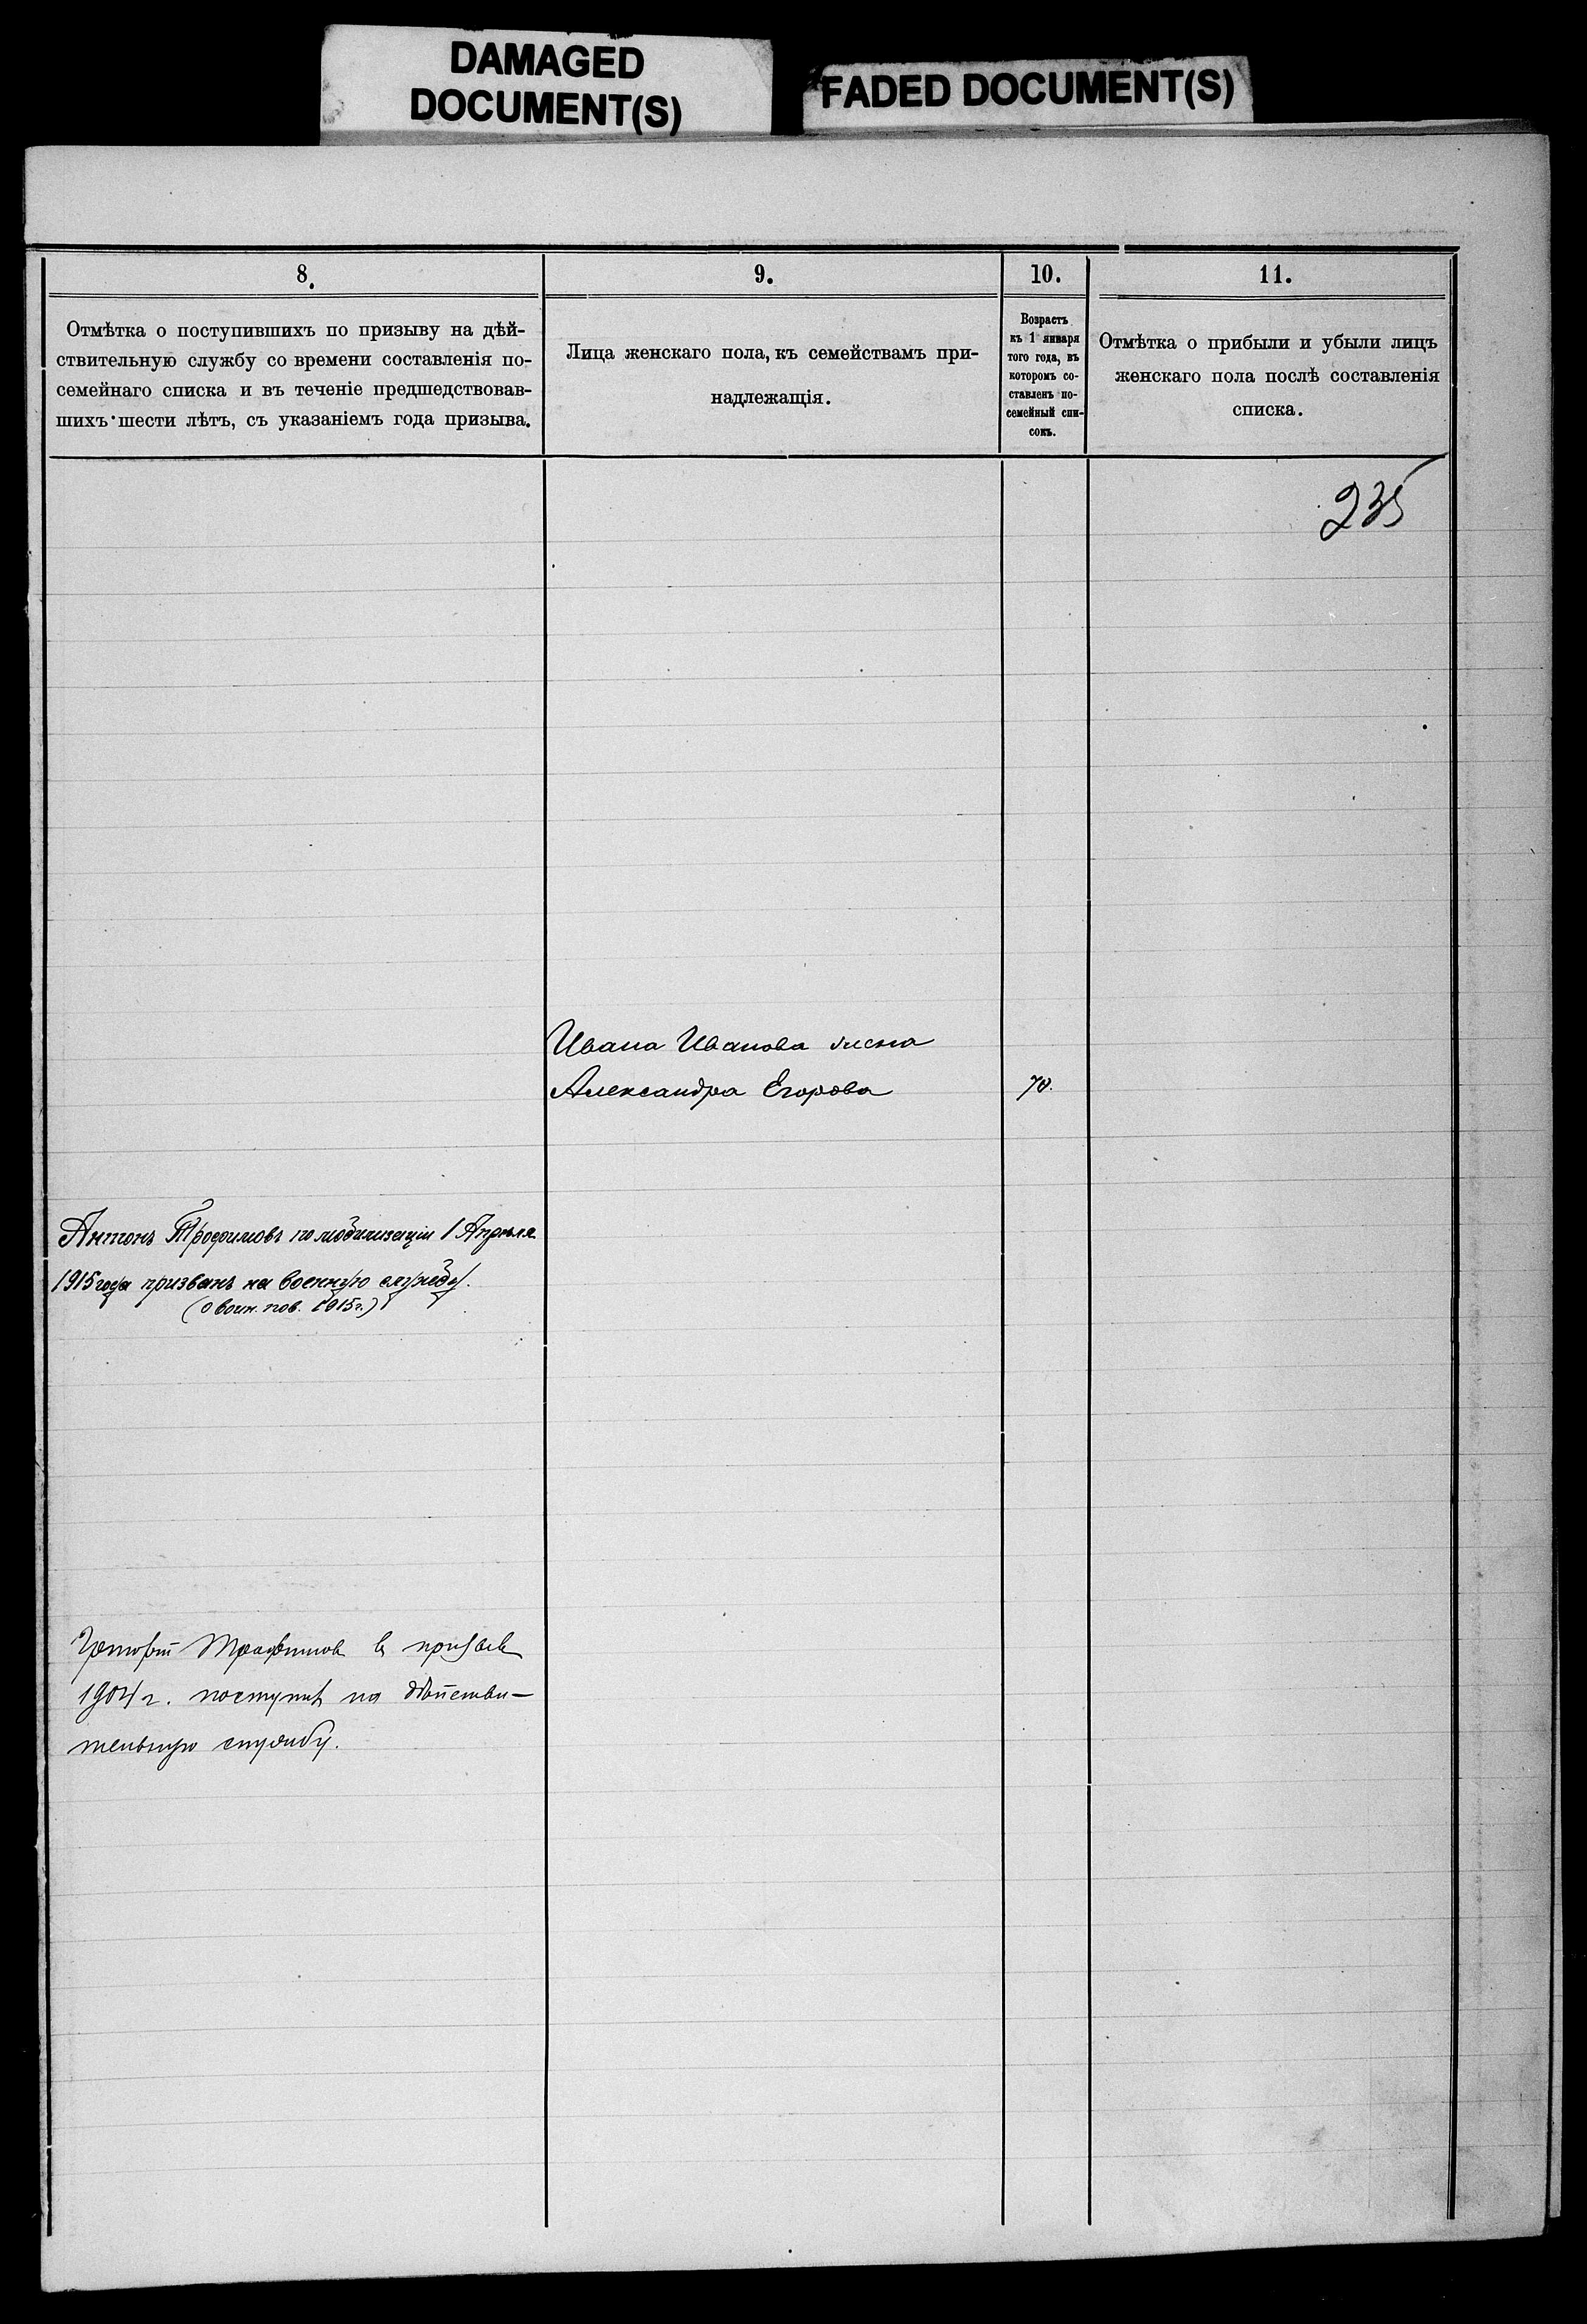 DAMAGED
DOCUMENT(S)
FADED DOCUMENT(S)
8.
Отмѣтка о поступившихъ по призыву на дѣй-
ствительную службу со времени составленія по-
семейнаго списка и въ теченіе предшедствовав-
шихъ шести лѣтъ, съ указаніемъ года призыва.
9.
Лица женскаго пола, къ семействамъ при-
надлежащія.
10.
Возрастъ
къ 1 января
того года, въ
которомъ со-
ставленъ по-
семейный спи-
сокъ.
11.
Отмѣтка о прибыли и убыли лицъ
женскаго пола послѣ составленія
списка.
235
Ивана Иванова жена
Александра Егорова 70.
Антонъ Трофимовъ по мобилизаціи 1 Апрѣля
1915 года призванъ на военную службу.
(о воин. пов. 1915 г.)
Трофимов в призыв
1904 г. поступил на дѣйстви-
тельную службу.